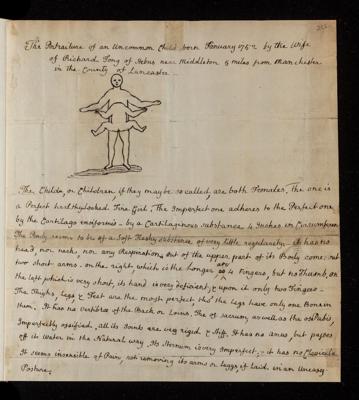 The Portraiture of an Uncommon Child born January 1752 by the Wife
of Richard Tong of near Middleton 5 miles from Manchester
in the County of Lancaster
The Child, or Children if they may be so called, are both Females, the one is
a Perfect healthylooked Fine Girl; The Imperfect one adheres to the Perfect one
by the Cartilago ensiformis - by a Cartilaginous substance, 4 Inches in Circumference
The Body seems to be of a Soft Fleshy substance of very little regularity - it has no
head, nor neck, nor any Respiration, out of the upper part of its Body come out
two short arms - on the right which is the longer is 4 Fingers, but no Thumb, on
the left which is very short, its hand is very deficient, & upon it only two Fingers -
The Thighs, legs & Feet are the most perfect, tho' the legs have only one Bone in
them. It has no vertebræ of the Back or Loins, The Os sacrum as well as the os Pubis,
Imperfectly ossified, all its Joints are very rigid & stiff, It has no Anus, but passes
off its Water in the Natural way, Its Sternum is very Imperfect, & it has no
It seems insensible of Pain, not removing its arms or leggs, if laid in an Uneasy
Posture,